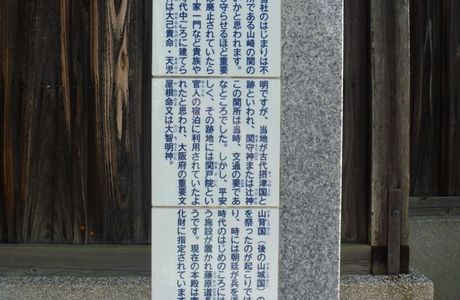 当社のはじまりは不明ですが、当地が古代摂津国と山背国（後の山城国）の
所である山崎の関の跡といわれ、関守神または辻神を祭ったのが起こりでは
いかと思われます。この関所は当時、交通の要であり、時には朝廷が兵を
を守らせるほど重要なところでした。しかし、平安時代のはじめのころには
廃止されていたらしく、その跡地には関戸院という施設が置かれ藤原道長
家一門など貴族や官人の宿泊に利用されていたようです。現在の本殿は室
代中ころに建てられたと思われ、大阪府の重要文化財に指定されています
は大己貴命・天児屋根命又は大智明神。